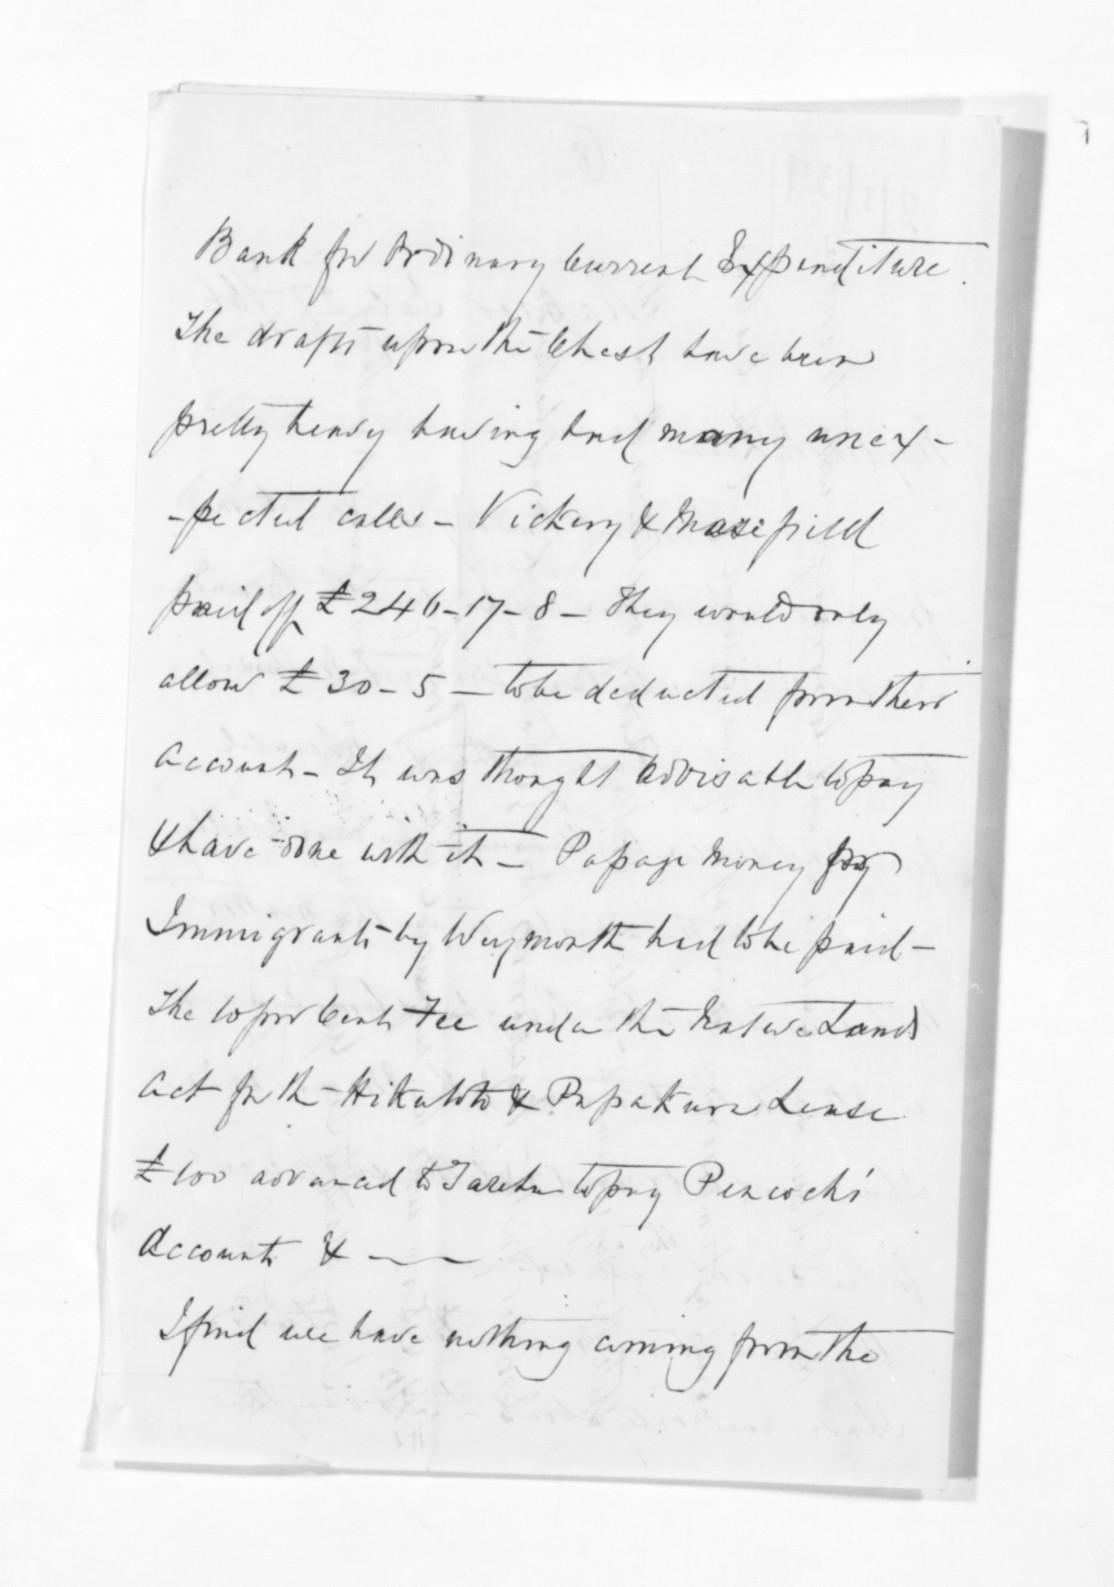 Bank for Ordinary Current Expenditure.
The drafts upon the Chest have been
pretty heavy having had many unex-
-pected calls - Vickery & Masefield
paid off £246-17-8 - They would only
allow £30-5 - to be deducted from their
Account - It was thought advisable to pay
& have done with it - Passage Money for
Immigrants by Weymouth had to be paid -
The 10 per Cent Fee under the Native Lands
Act for the Hikutoto & Papakura Lease
£100 advanced to Tareha to pay Peacock's
Accounts &
I find we have nothing coming from the